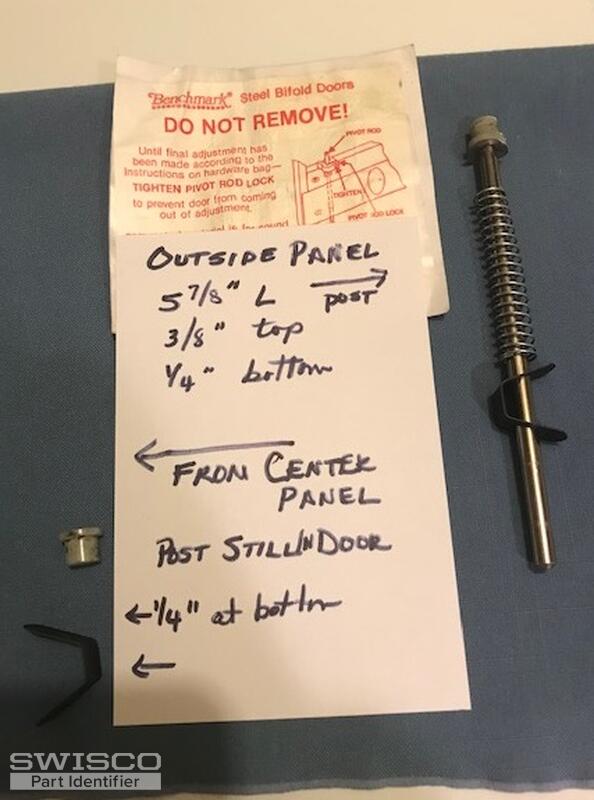 Benchmark® Steel Bifold Doors
DO NOT REMOVE!
Until final adjustment has
been made according to the
instructions on hardware bag—
TIGHTEN PIVOT ROD LOCK
to prevent door from coming
out of adjustment.
PIVOT ROD
TIGHTEN
PIVOT ROD LOCK
OUTSIDE PANEL
5 7/8" L → POST
3/8" top
1/4" bottom
←
FROM CENTER
PANEL
POST STILL IN DOOR
← 1/4" at bottom
←
SWISCO
Part Identifier